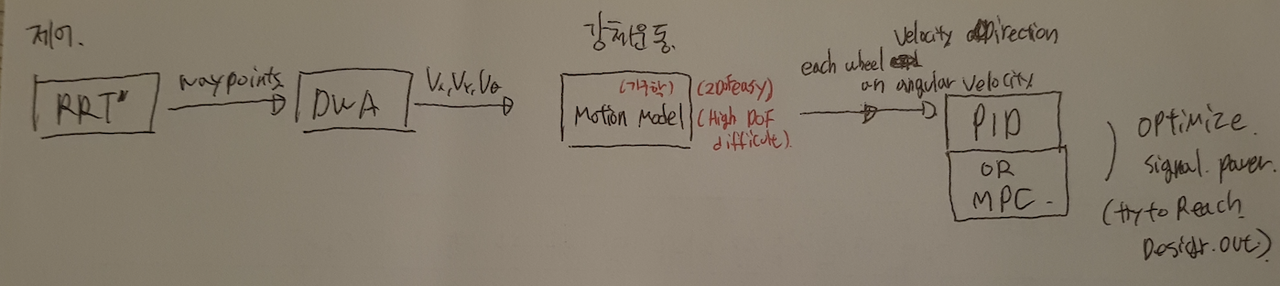 제어.
RRT*
waypoints
DWA
Vx, Vy, Vθ
강체운동.
(기구학)
Motion Model
(2DOF easy)
(High DoF
difficult).
Velocity Direction
each wheel
an angular velocity
PID
OR
MPC.
OPtimize.
signal. power.
(try to Reach
Desir. out.)